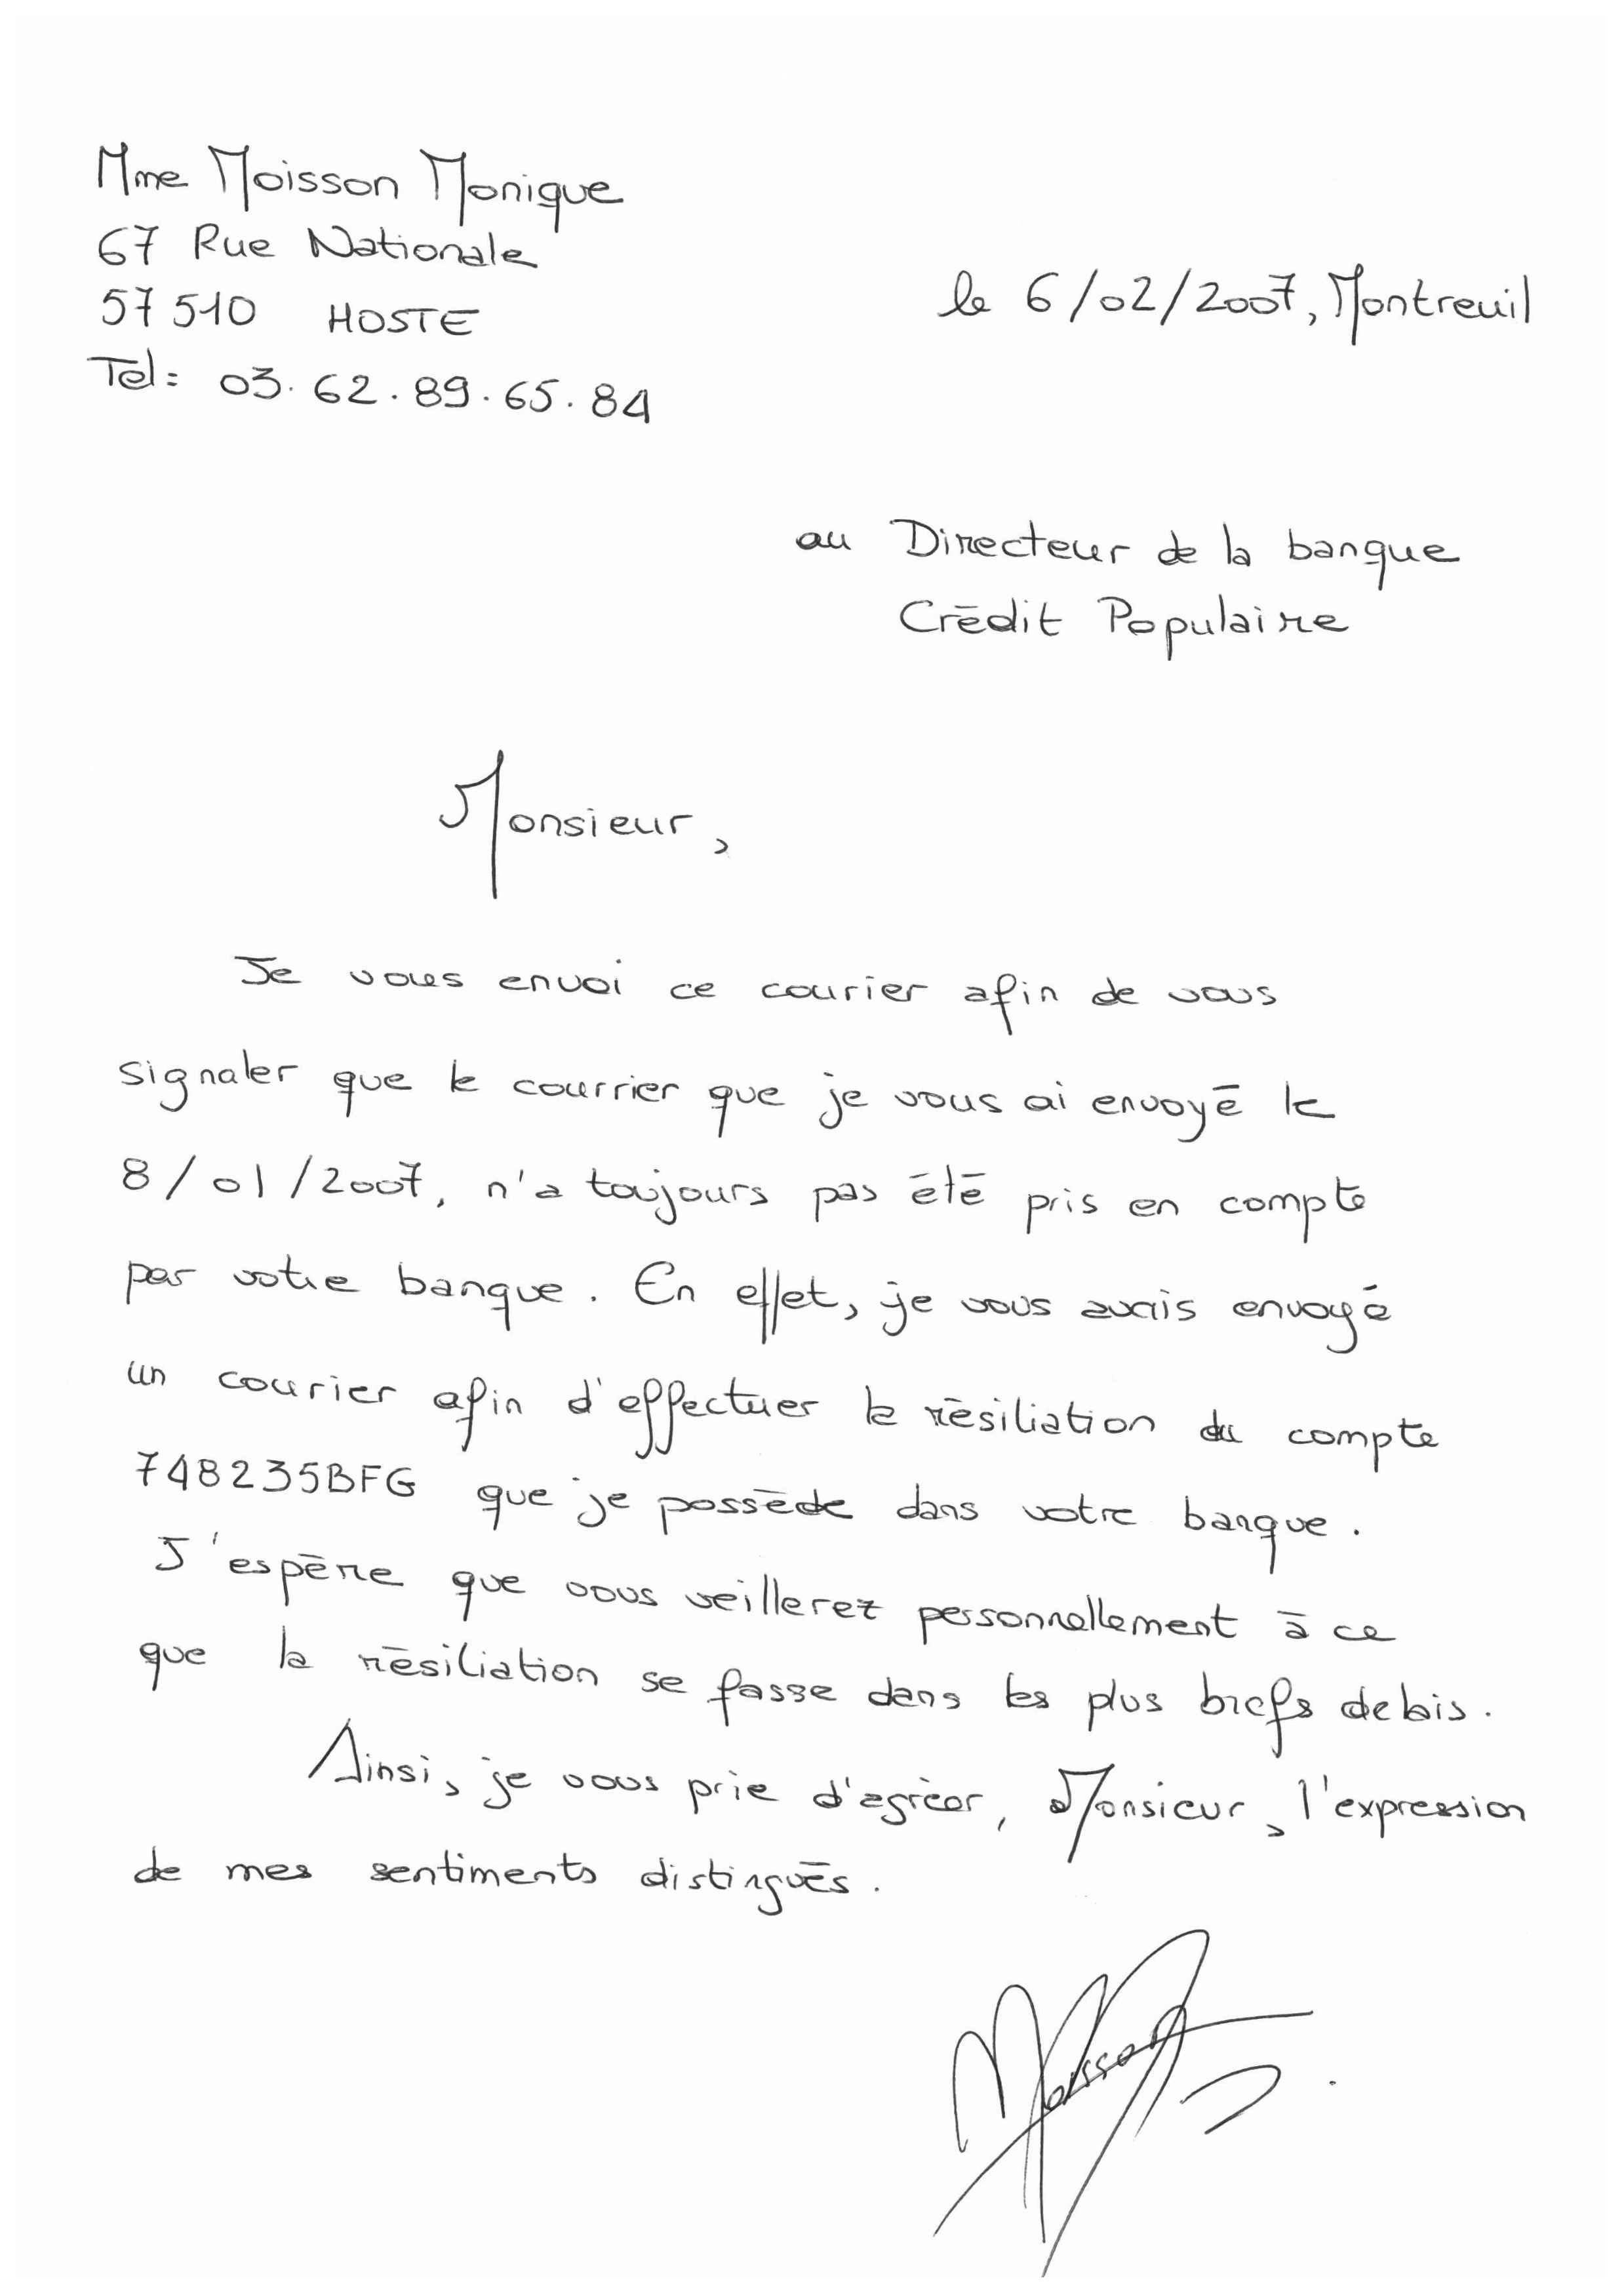 Mme Moisson Monique
67 Rue Nationale
57510 HOSTE
Tel: 03.62.89.65.84
le 6/02/2007, Montreuil
au Directeur de la banque
Crédit Populaire
Monsieur,
Je vous envoi ce courier afin de vous
signaler que le courrier que je vous ai envoyé le
8/01/2007, n'a toujours pas été pris en compte
par votre banque. En effet, je vous avais envoyé
un courier afin d'effectuer la résiliation du compte
748235BFG que je possède dans votre banque.
J'espère que vous veillerez personnellement à ce
que la résiliation se fasse dans les plus brefs delais.
Ainsi, je vous prie d'agréer, Monsieur, l'expression
de mes sentiments distingués.
Moisson